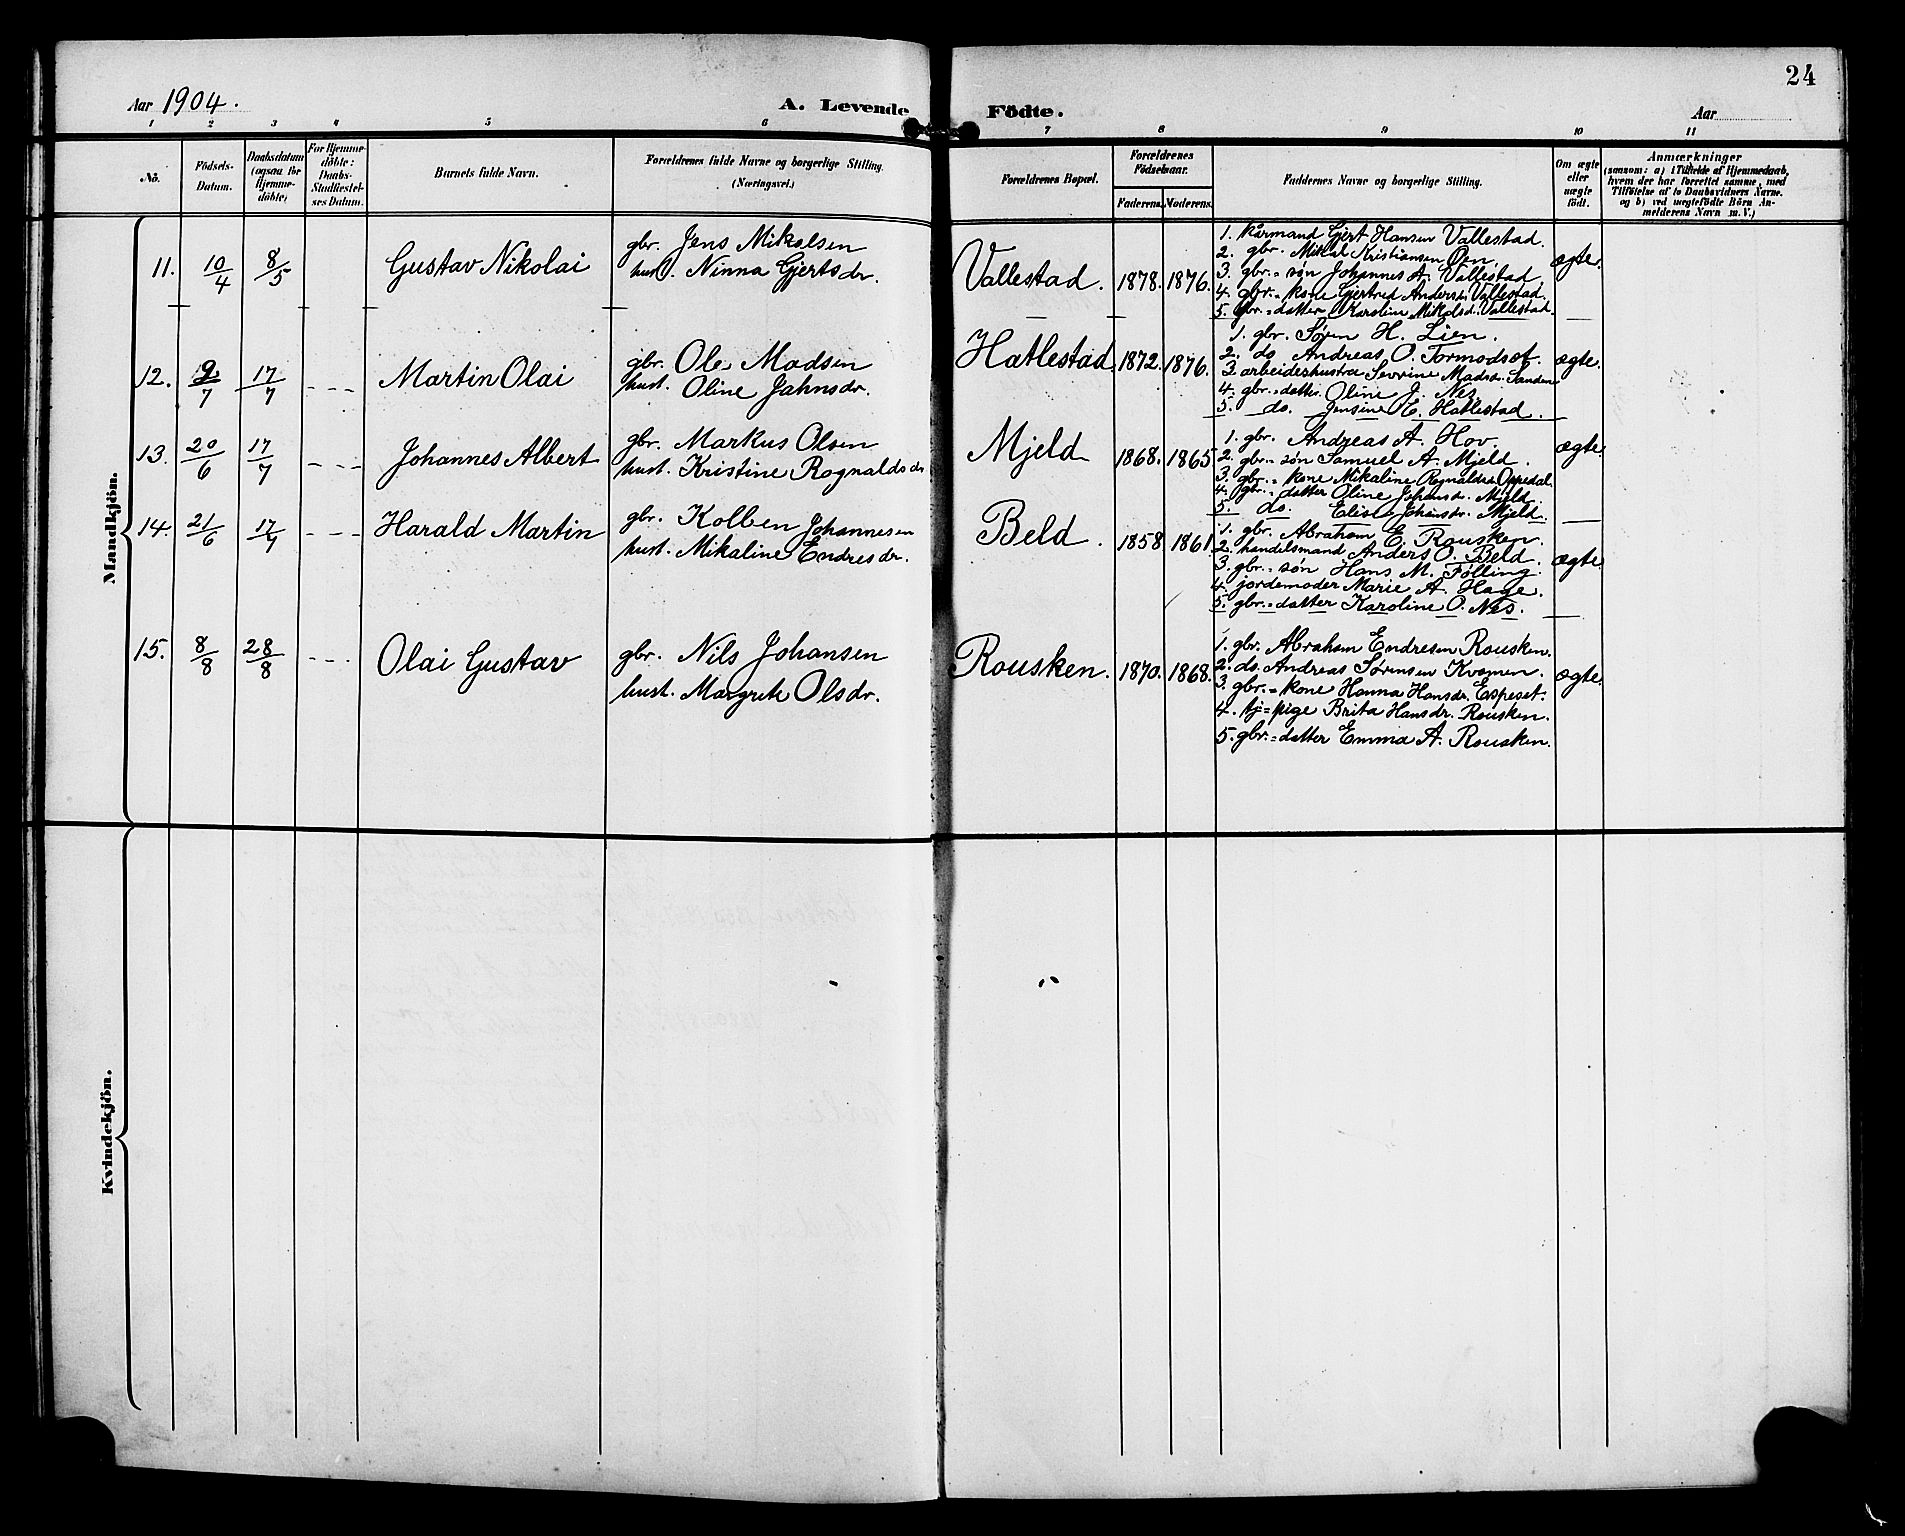 24
Aar 1904.
A. Levende Födte.
Aar
1 2 3 4 5 6 7 8 9 10 11
No.
Födsels-Datum.
Daabsdatum (ogsaa for Hjemme-döbte)
For Hjemme-döbte: Daabs-Stadfæstelses Datum.
Barnets fulde Navn.
Forældrenes fulde Navne og borgerlige Stilling. (Næringsvei.)
Forældrenes Bopæl.
Forældrenes Födselsaar.
Faderens. Moderens.
Faddernes Navne og borgerlige Stilling.
Om ægte eller uægte födt.
Anmærkninger
(saasom: a) i Tilfælde af Hjemmedaab, hvem der har forrettet samme, med Tilföielse af to Daabsvidners Navne. og b) ved uægtefödte Börn Anmelderens Navn m. V.)
Mandkjön.
11. 10/4 8/5 Gustav Nikolai
gbr. Jens Mikalsen
hust. Ninna Gjertsdr.
Vallestad. 1878. 1876.
1. Kårmand Gjert Hansen Vallestad.
2. gbr. Mikal Kristiansen Øen.
3. gbr.=søn Johannes A. Vallestad
4. gbr.=kone Gjertrud Andersd. Vallestad.
5. gbr.=datter Karoline Mikalsd. Vallestad.
ægte.
12. 9/7 17/7 - - - Martin Olai
gbr. Ole Madsen
hust. Oline Jahnsdr.
Hatlestad. 1872. 1876.
1. gbr. Søren H. Lien.
2. do Andreas O. Tormodset.
3. arbeiderhustru Sevrine Madsdr. Sanden
4. gbr.=datter Oline J. Nes.
5. do. Jensine H. Hatlestad.
ægte.
13. 20/6 17/7 - - - Johannes Albert
gbr. Markus Olsen
hust. Kristine Rognaldsdr
Mjeld 1868. 1865
1. gbr. Andreas A. Hov.
2. gbr.=søn Samuel A. Mjeld.
3. gbr.=kone Mikaline Rognaldsdr Oppedal.
4. gbr.=datter Oline Johansdr. Mjeld.
5. do. Johansdr. Mjeld.
ægte.
14. 21/6 17/7 - - - Harald Martin
gbr. Kolben Johannesen
hust. Mikaline Endresdr.
Beld. 1858 1861
1. gbr. Abraham E. Rousken.
2. handelsmand Anders O. Beld.
3. gbr.=søn Hans M. Følling.
4. jordemoder Marie A. Hage.
5. gbr.=datter Karoline O. Nes.
ægte.
15. 8/8 28/8 - - - Olai Gustav
gbr. Nils Johansen
hust. Margrete Olsdr.
Rousken. 1870. 1868.
1. gbr. Abraham Endresen Rousken.
2. do. Andreas Sørensen Kvamen.
3. gbr.=kone Hanna Hansdr. Espeset.
4. tj=pige Brita Hansdr. Rousken.
5. gbr.=datter Emma A. Rousken.
ægte.
Kvindekjön.